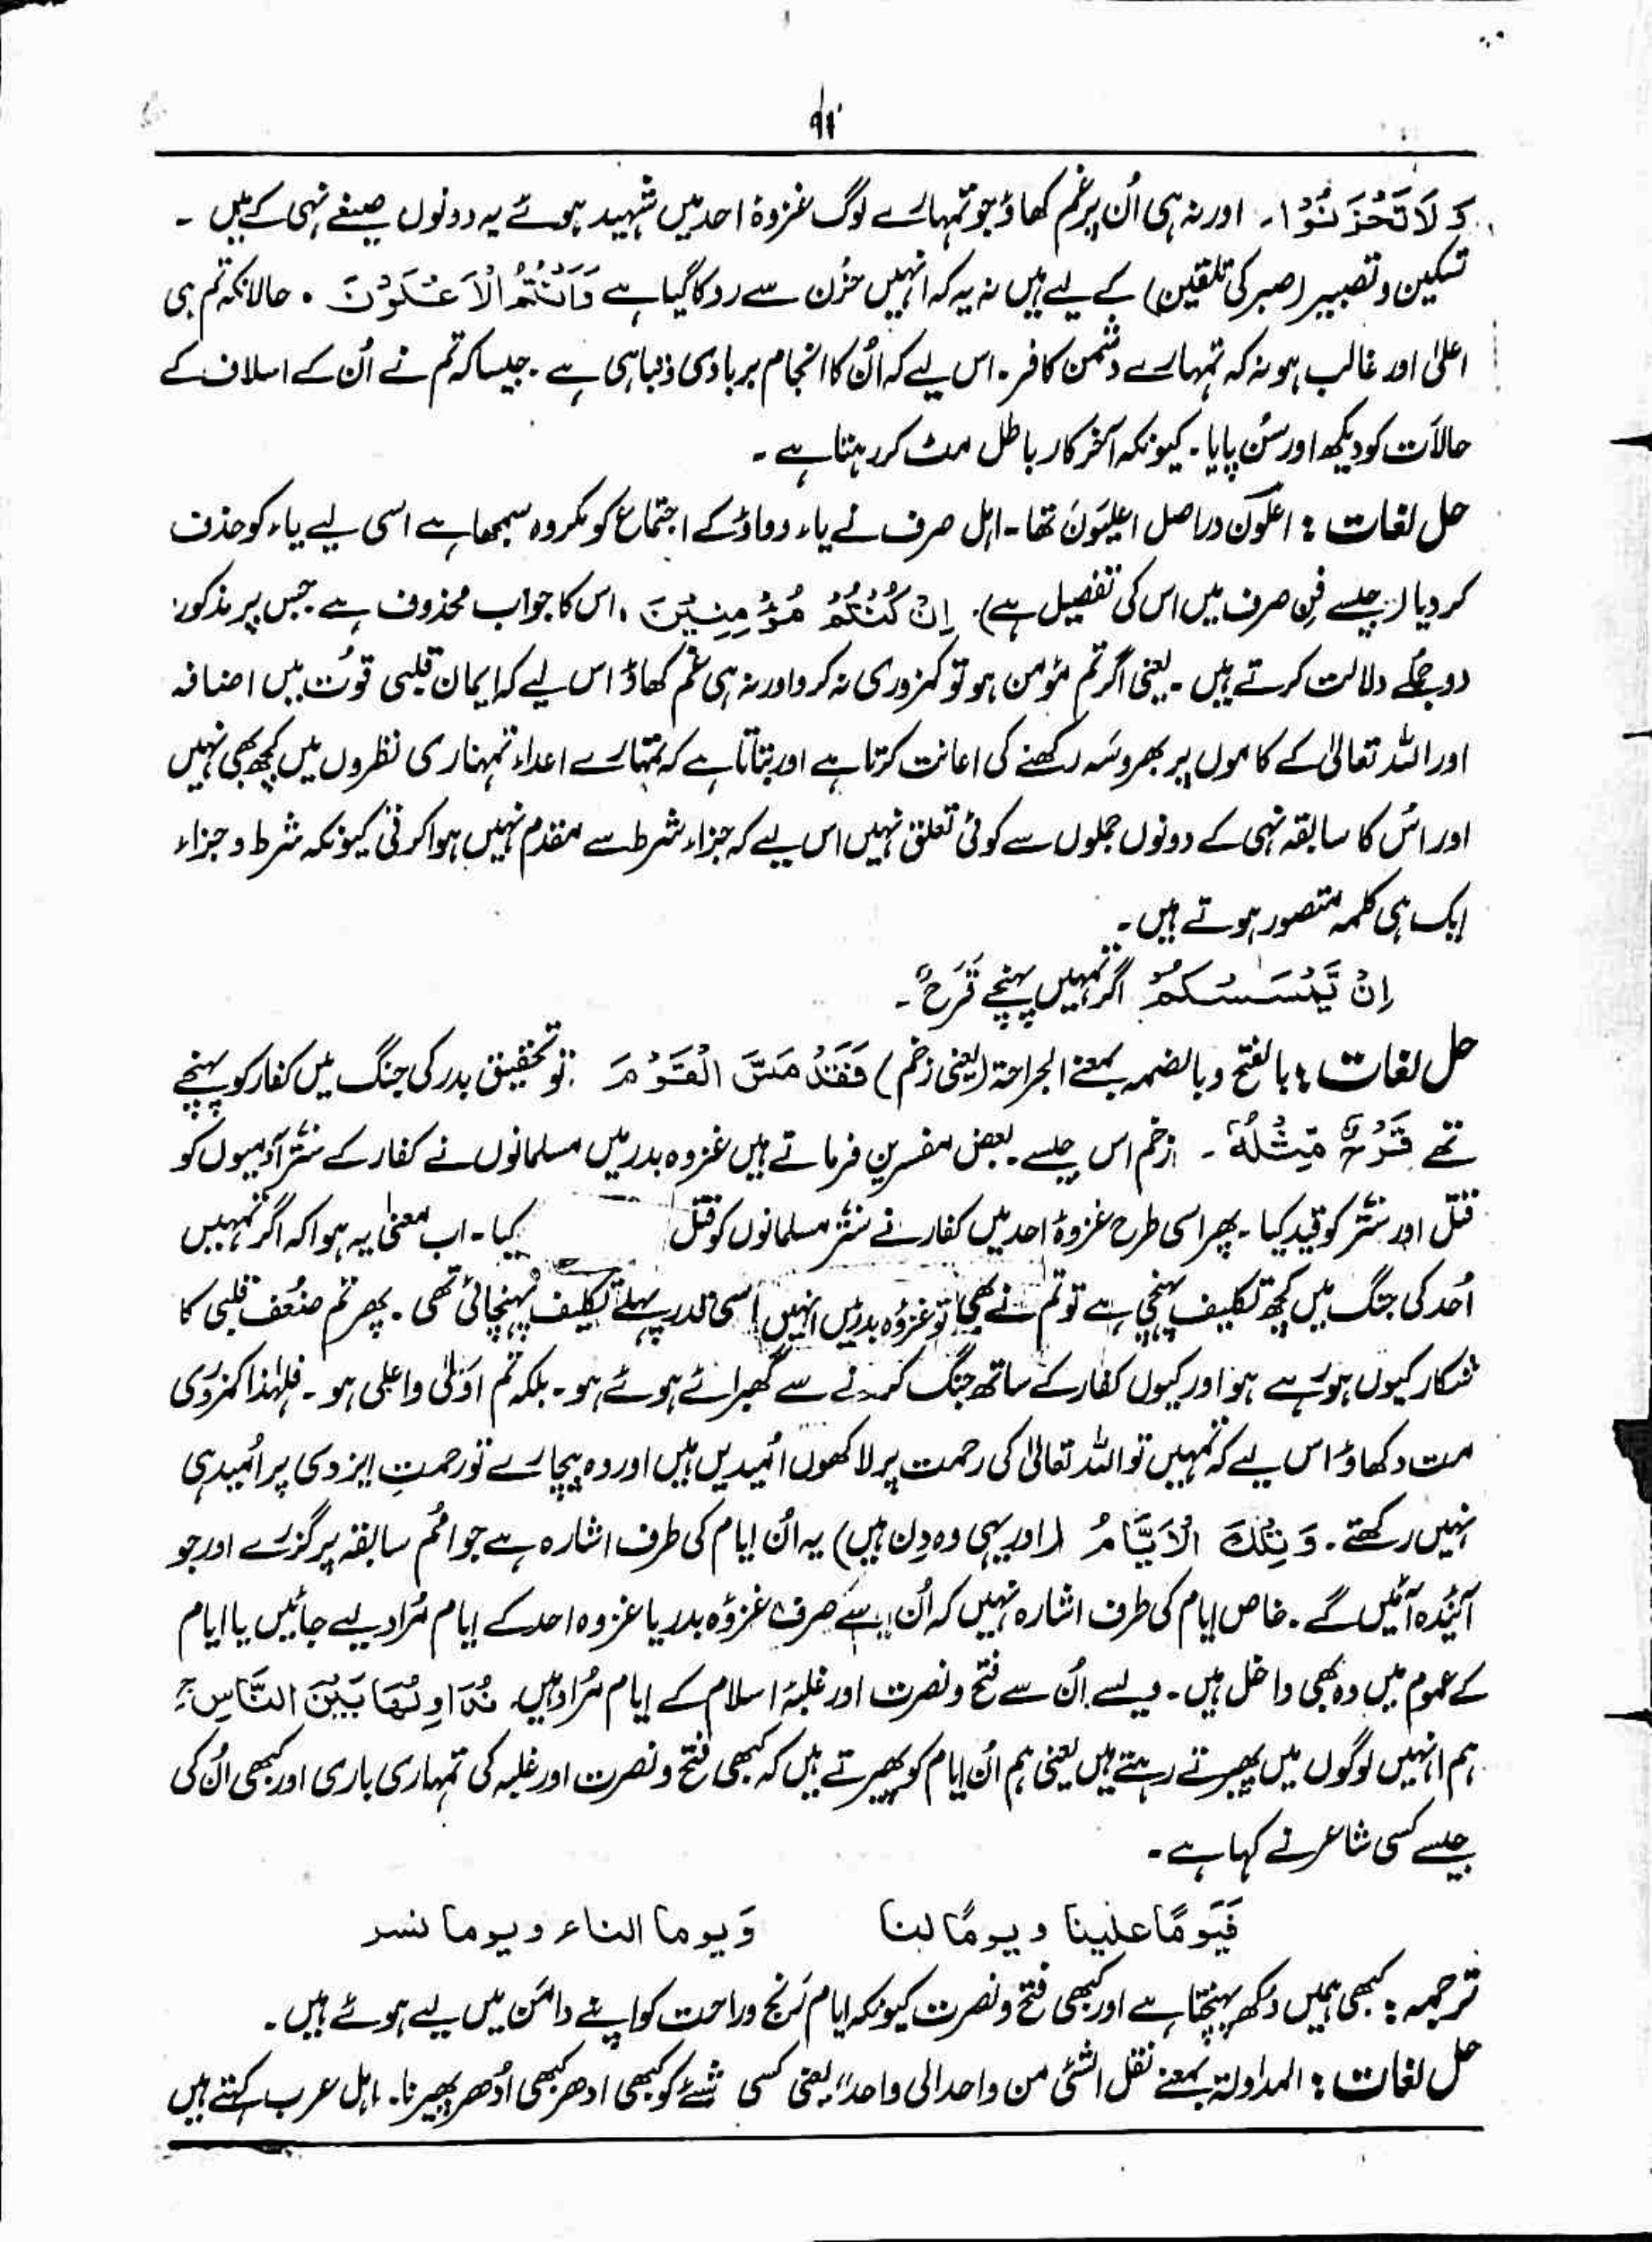 وَ لَا تَحْزَنُوْا۔ اور نہ ہی اُن پر غم کھاؤ جو تمہارے لوگ غزوۂ احد میں شہید ہوئے یہ دونوں صیغے نہی کے ہیں ۔
تسکین و تصبیر (صبر کی تلقین) کے لیے ہیں نہ یہ کہ انہیں حزن سے روکا گیا ہے وَاَنْتُمُ الْاَعْلَوْنَ ۔ حالانکہ تم ہی
اعلیٰ اور غالب ہو نہ کہ تمہارے دشمن کافر ۔ اس لیے کہ اُن کا انجام بربادی و تباہی ہے ۔ جیسا کہ تم نے اُن کے اسلاف کے
حالات کو دیکھ اور سُن پایا ۔ کیونکہ آخر کار باطل مٹ کر رہتا ہے ۔
حل لغات : اعلون دراصل اعلیون تھا ۔ اہل صرف نے یاء و واؤ کے اجتماع کو مکروہ سمجھا ہے اسی لیے یاء کو حذف
کر دیا (جیسے فن صرف میں اس کی تفصیل ہے) ۔ اِنْ كُنْتُمْ مُؤْمِنِيْنَ ۔ اس کا جواب محذوف ہے جس پر مذکورہ
دو جملے دلالت کرتے ہیں ۔ یعنی اگر تم مؤمن ہو تو کمزوری نہ کرو اور نہ ہی غم کھاؤ اس لیے کہ ایمان قلبی قوت میں اضافہ
اور اللہ تعالیٰ کے کاموں پر بھروسہ رکھنے کی اعانت کرتا ہے اور بتاتا ہے کہ تمہارے اعداء تمہاری نظروں میں کچھ بھی نہیں
اور اس کا سابقہ نہی کے دونوں جملوں سے کوئی تعلق نہیں اس لیے کہ جزاء شرط سے مقدم نہیں ہوا کرتی کیونکہ شرط و جزاء
ایک ہی کلمہ متصور ہوتے ہیں ۔
اِنْ يَّمْسَسْكُمْ اگر تمہیں پہنچے قَرْحٌ ۔
حل لغات : بالفتح و بالضمہ بمعنے الجراحۃ (یعنی زخم) فَقَدْ مَسَّ الْقَوْمَ ۔ تو تحقیق بدر کی جنگ میں کفار کو پہنچے
تھے قَرْحٌ مِّثْلُهٗ ۔ زخم اس جیسے ۔ بعض مفسرین فرماتے ہیں غزوہ بدر میں مسلمانوں نے کفار کے ستر آدمیوں کو
قتل اور ستر کو قید کیا ۔ پھر اسی طرح غزوۂ احد میں کفار نے ستر مسلمانوں کو قتل کیا ۔ اب معنیٰ یہ ہوا کہ اگر تمہیں
اُحد کی جنگ میں کچھ تکلیف پہنچی ہے تو تم نے بھی تو غزوۂ بدر میں انہیں اسی قدر پہلے تکلیف پہنچائی تھی ۔ پھر تم ضعف قلبی کا
شکار کیوں ہو رہے ہو اور کیوں کفار کے ساتھ جنگ کرنے سے گھبرائے ہوئے ہو ۔ بلکہ تم اولیٰ و اعلی ہو ۔ فلہٰذا کمزوری
مت دکھاؤ اس لیے کہ تمہیں تو اللہ تعالیٰ کی رحمت پر لاکھوں اُمیدیں ہیں اور وہ بیچارے تو رحمتِ ایزدی پر اُمید ہی
نہیں رکھتے ۔ وَ تِلْكَ الْاَيَّامُ (اور یہی وہ دن ہیں) یہ اُن ایام کی طرف اشارہ ہے جو اُمم سابقہ پر گزرے اور جو
آئندہ آئیں گے ۔ خاص ایام کی طرف اشارہ نہیں کہ اُن سے صرف غزوۂ بدر یا غزوہ احد کے ایام مُراد لیے جائیں یا ایام
کے عموم میں وہ بھی داخل ہیں ۔ ویسے اُن سے فتح و نصرت اور غلبۂ اسلام کے ایام مُراد ہیں ۔ نُدَاوِلُهَا بَيْنَ النَّاسِ ۚ
ہم انہیں لوگوں میں پھیرتے رہتے ہیں یعنی ہم اُن ایام کو پھیرتے ہیں کہ کبھی فتح و نصرت اور غلبہ کی تمہاری باری اور کبھی اُن کی
جیسے کسی شاعر نے کہا ہے ۔
فَيَوْمًا علينا و يومًا لنا وَ يوما النساء و يوما نسر
ترجمہ : کبھی ہمیں دکھ پہنچتا ہے اور کبھی فتح و نصرت کیونکہ ایام رنج و راحت کو اپنے دامن میں لیے ہوئے ہیں ۔
حل لغات : المداولۃ بمعنے نقل الشئ من واحد الی واحد“ یعنی کسی شے کو کبھی ادھر کبھی اُدھر پھیرنا ۔ اہل عرب کہتے ہیں